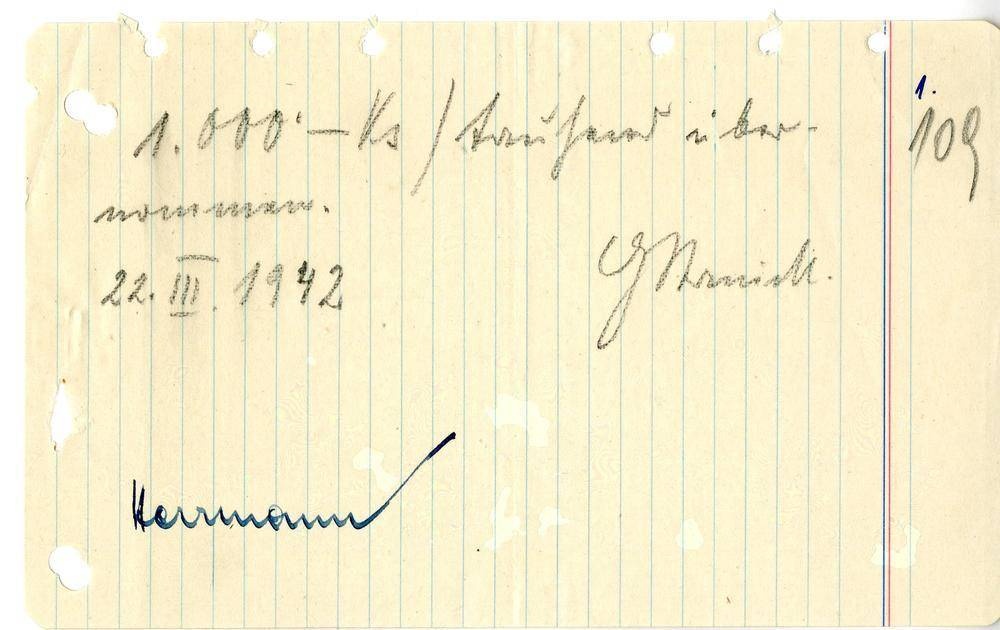 1.
109
1.000·— Ks / tausend über-
nommen.
22. III. 1942
Herrmann